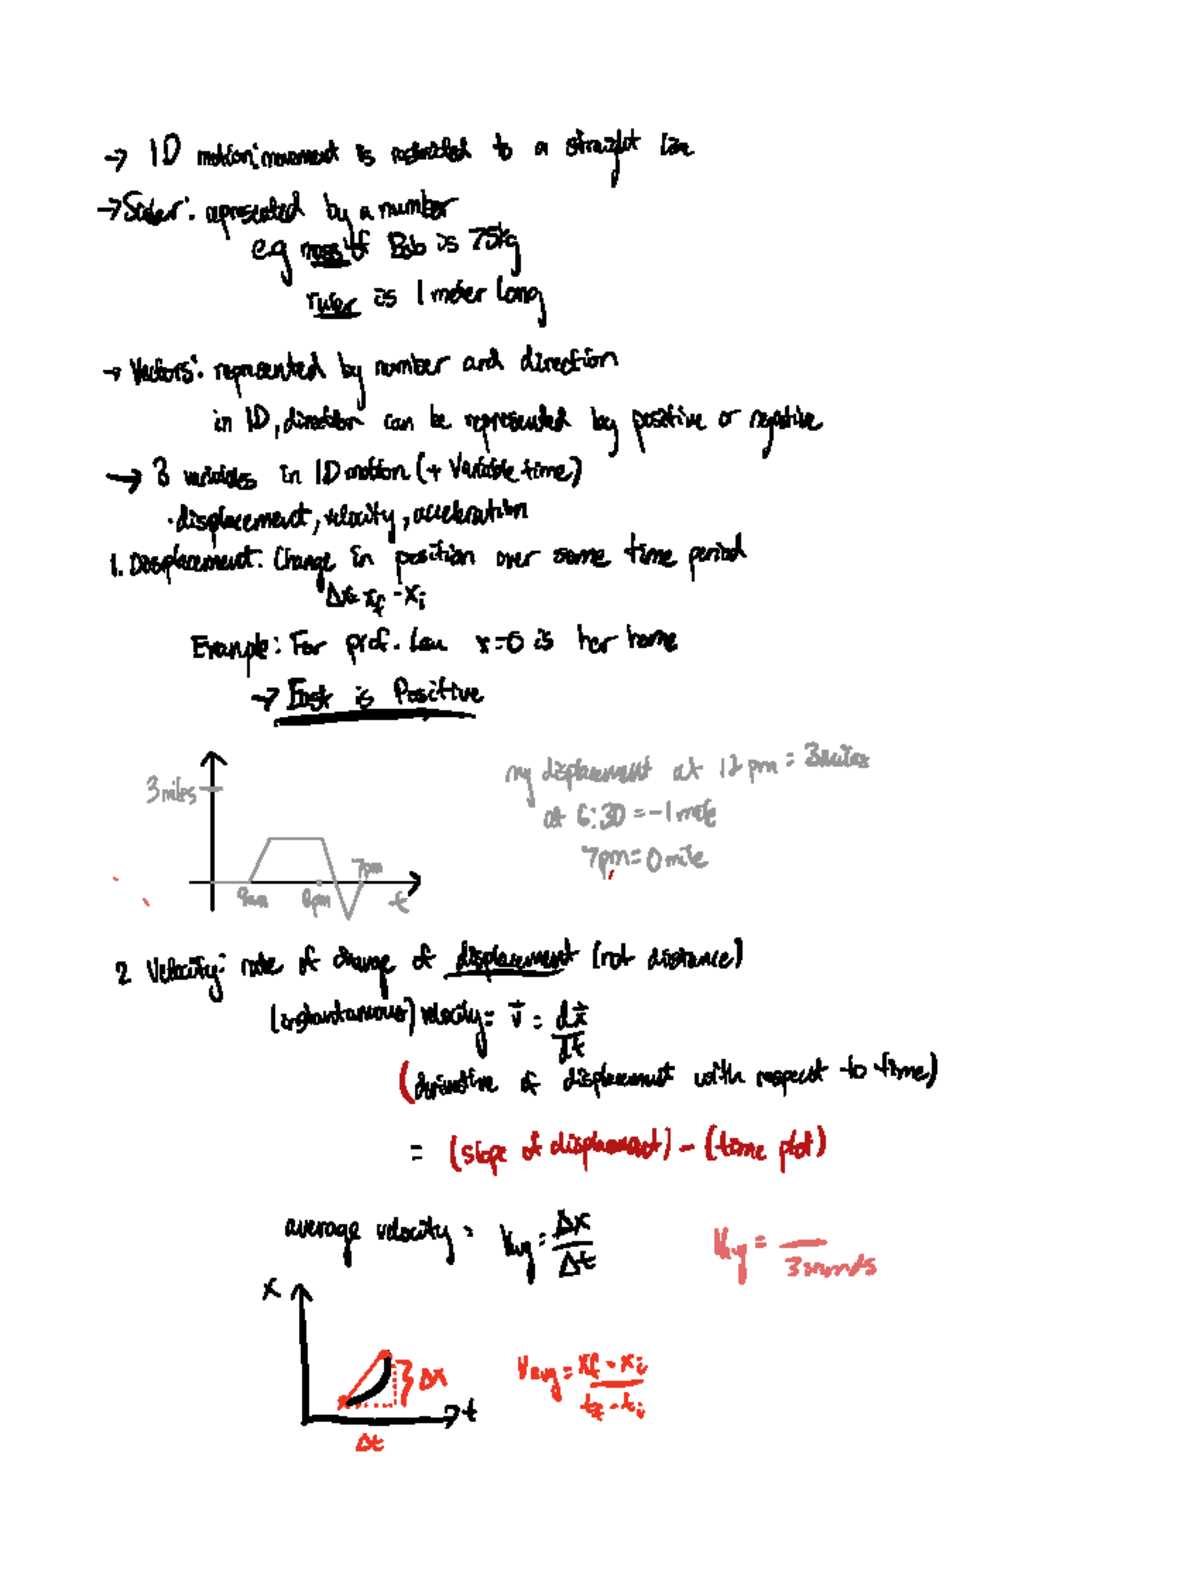 → 1D motion: movement is restricted to a straight line
→ Scalar: represented by a number
e.g mass of Bob is 75kg
ruler is 1 meter long
→ Vectors: represented by number and direction
in 1D, direction can be represented by positive or negative
→ 3 variables in 1D motion (+ Variable time)
· displacement, velocity, acceleration
1. Displacement: Change in position over some time period
Δx = xf - xi
Example: For prof. Lau x=0 is her home
→ East is Positive
3 miles
my displacement at 12 pm = 3 miles
at 6:30 = -1 mile
7pm = 0 mile
7pm
9am
t
2. Velocity: rate of change of displacement (not distance)
(instantaneous) velocity = v⃗ = dx⃗/dt
(derivative of displacement with respect to time)
= (slope of displacement) - (time plot)
average velocity = Vavg = Δx/Δt
Vavg = — / 3 seconds
x
Δx
Vavg = xf - xi / tf - ti
t
Δt